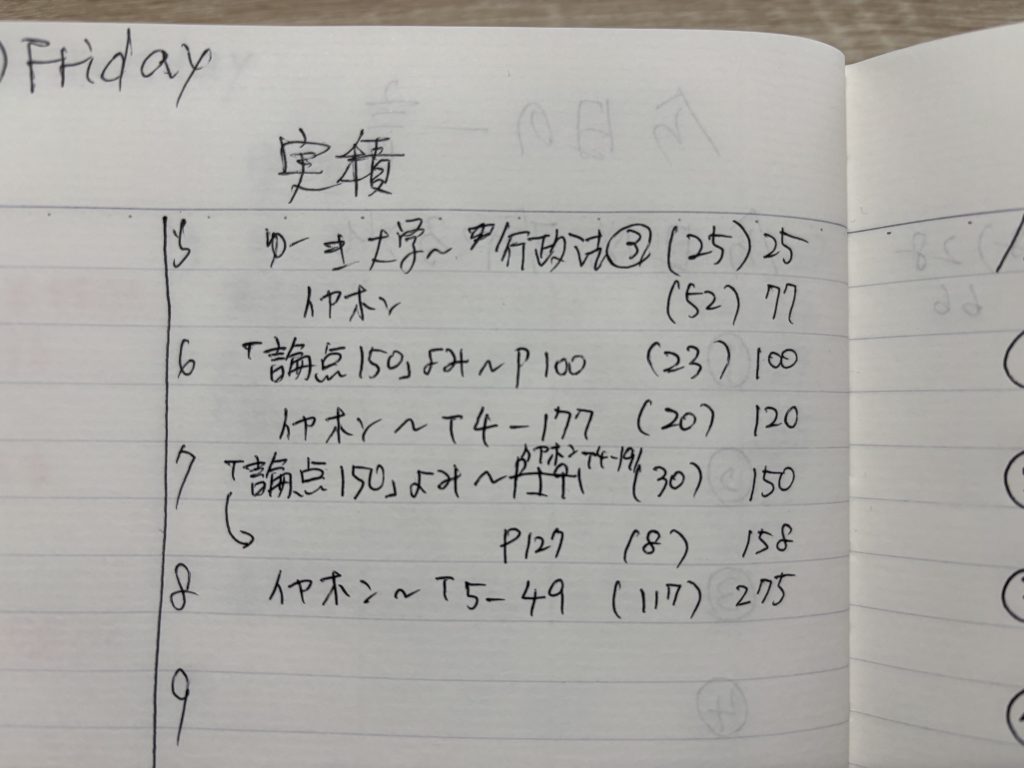 ) Friday
実積
5 ゆーき大学～行政法③ (25) 25
イヤホン (52) 77
6 「論点150」よみ～P100 (23) 100
イヤホン～T4-177 (20) 120
イヤホンT4-191
7 「論点150」よみ～ (30) 150
P127 (8) 158
8 イヤホン～T5-49 (117) 275
9